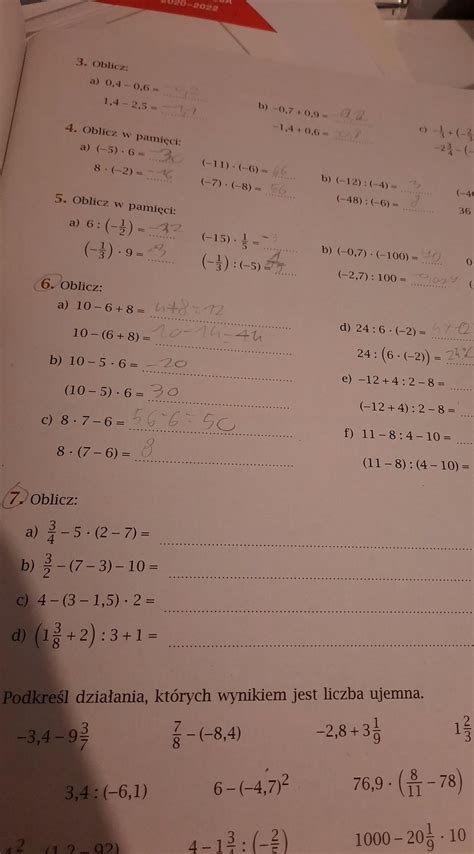 2020-2022
3. Oblicz:
a) 0,4 – 0,6 =
1,4 – 2,5 =
b) –0,7 + 0,9 = 0,2
–1,4 + 0,6 =
c)
4. Oblicz w pamięci:
a) (–5) · 6 = –30
8 · (–2) = –16
(–11) · (–6) = 66
(–7) · (–8) = 56
b) (–12) : (–4) = 3
(–48) : (–6) = 8
36
5. Oblicz w pamięci:
a) 6 : (–1/2) = –12
(–1/3) · 9 = –3
(–15) · 1/5 = –3
(–1/3) : (–5) =
b) (–0,7) · (–100) = 70
(–2,7) : 100 =
6. Oblicz:
a) 10 – 6 + 8 = 4+8=12
10 – (6 + 8) = 10–14
b) 10 – 5 · 6 = –20
(10 – 5) · 6 = 30
c) 8 · 7 – 6 = 56–6=50
8 · (7 – 6) = 8
d) 24 : 6 · (–2) =
24 : (6 · (–2)) =
e) –12 + 4 : 2 – 8 =
(–12 + 4) : 2 – 8 =
f) 11 – 8 : 4 – 10 =
(11 – 8) : (4 – 10) =
7. Oblicz:
a) 3/4 – 5 · (2 – 7) =
b) 3/2 – (7 – 3) – 10 =
c) 4 – (3 – 1,5) · 2 =
d) (1 3/8 + 2) : 3 + 1 =
Podkreśl działania, których wynikiem jest liczba ujemna.
–3,4 – 9 3/7 7/8 – (–8,4) –2,8 + 3 1/9 1 2/3
3,4 : (–6,1) 6 – (–4,7)² 76,9 · (8/11 – 78)
(1,2 – 92) 4 – 1 3/4 : (–2/5) 1000 – 20 1/9 · 10